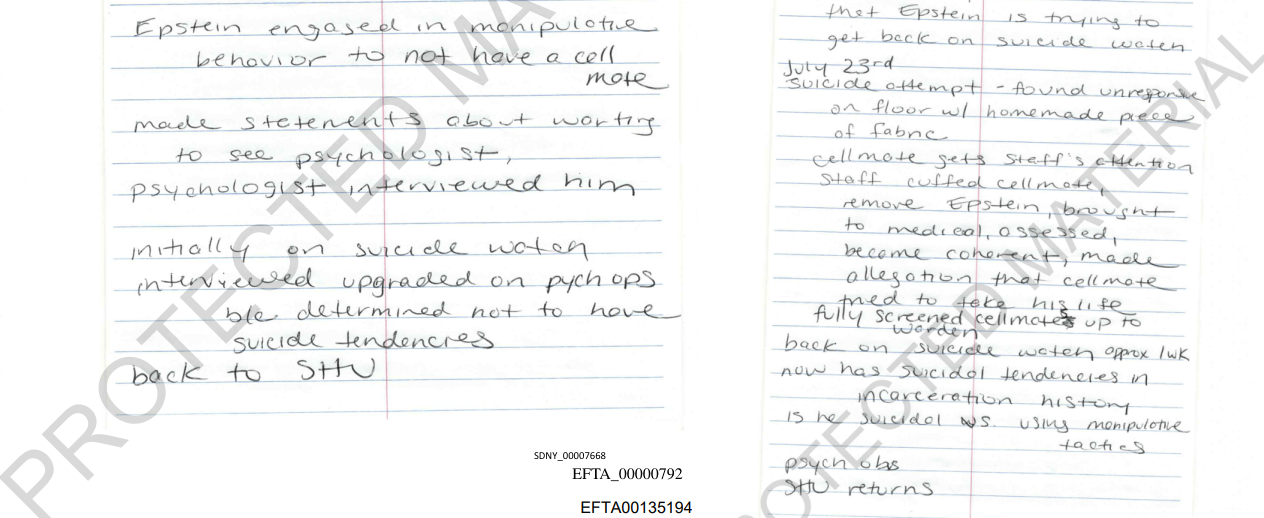 Epstein engaged in manipulative
behavior to not have a cell
mate
made statements about wanting
to see psychologist,
psychologist interviewed him
initially on suicide watch
interviewed upgraded on pych ops
b/c determined not to have
suicide tendencies
back to SHU
SDNY_00007668
EFTA_00000792
EFTA00135194
that Epstein is trying to
get back on suicide watch
July 23rd
suicide attempt - found unresponsive
on floor w/ homemade piece
of fabric
cellmate gets staff's attention
staff cuffed cellmate,
remove Epstein, brought
to medical, assessed,
became coherent, made
allegation that cellmate
tried to take his life
fully screened cellmates up to
warden
back on suicide watch approx 1wk
now has suicidal tendencies in
incarceration history
is he suicidal vs. using manipulative
tactics
psych obs
SHU returns
PROTECTED MA
PROTECTED MATERIAL